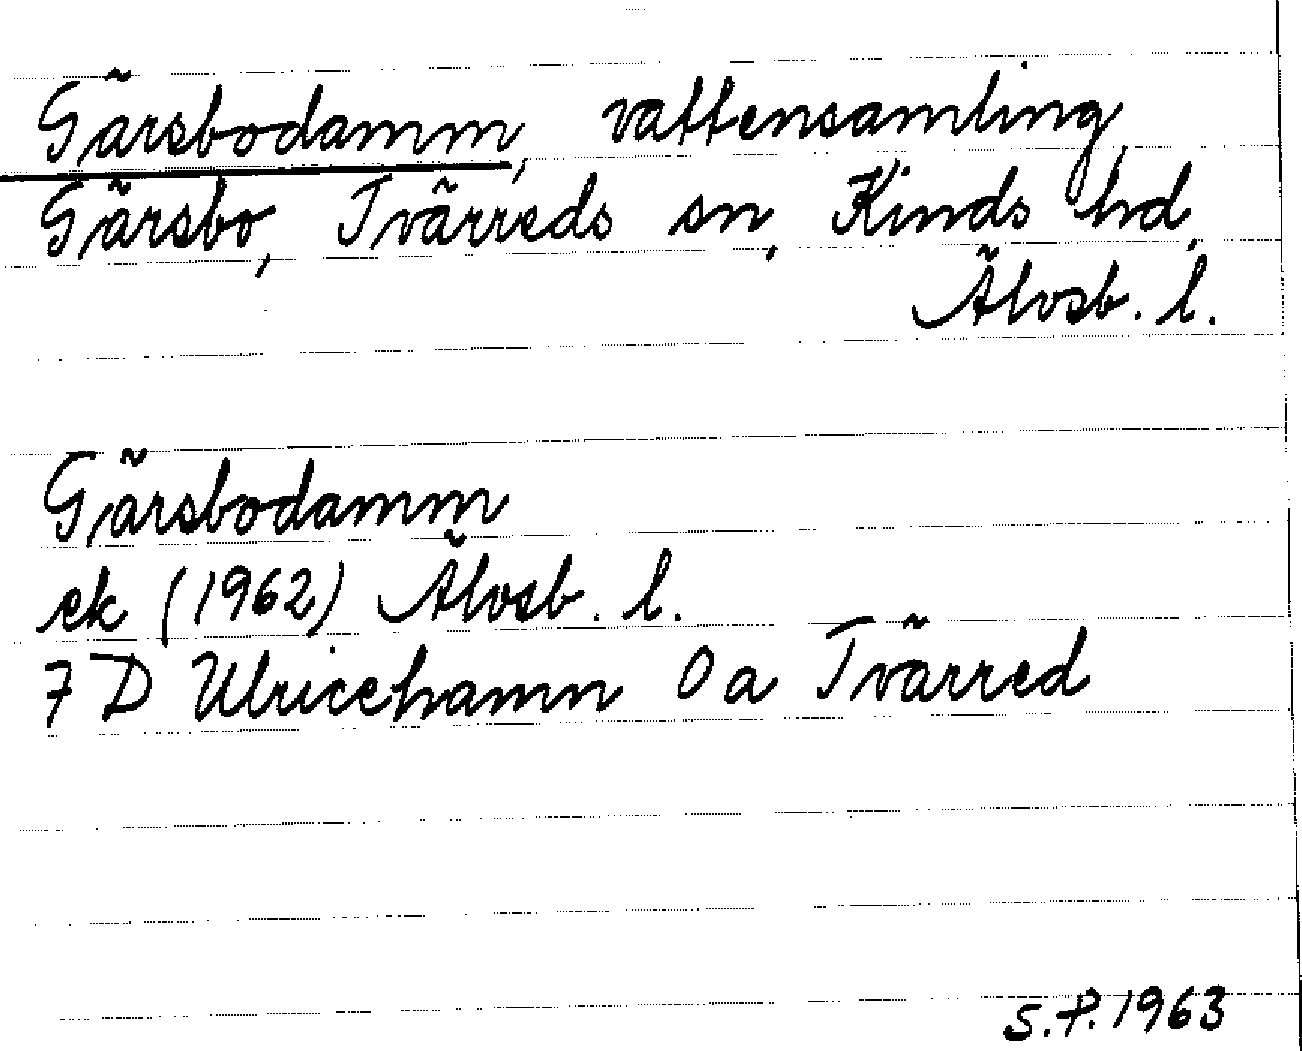 Gärsbodamm, vattensamling,
Gärsbo, Tvärreds sn, Kinds hd,
Älvsb. l.
Gärsbodamm
ek (1962) Älvsb. l.
7 D Ulricehamn 0 a Tvärred
S.P. 1963